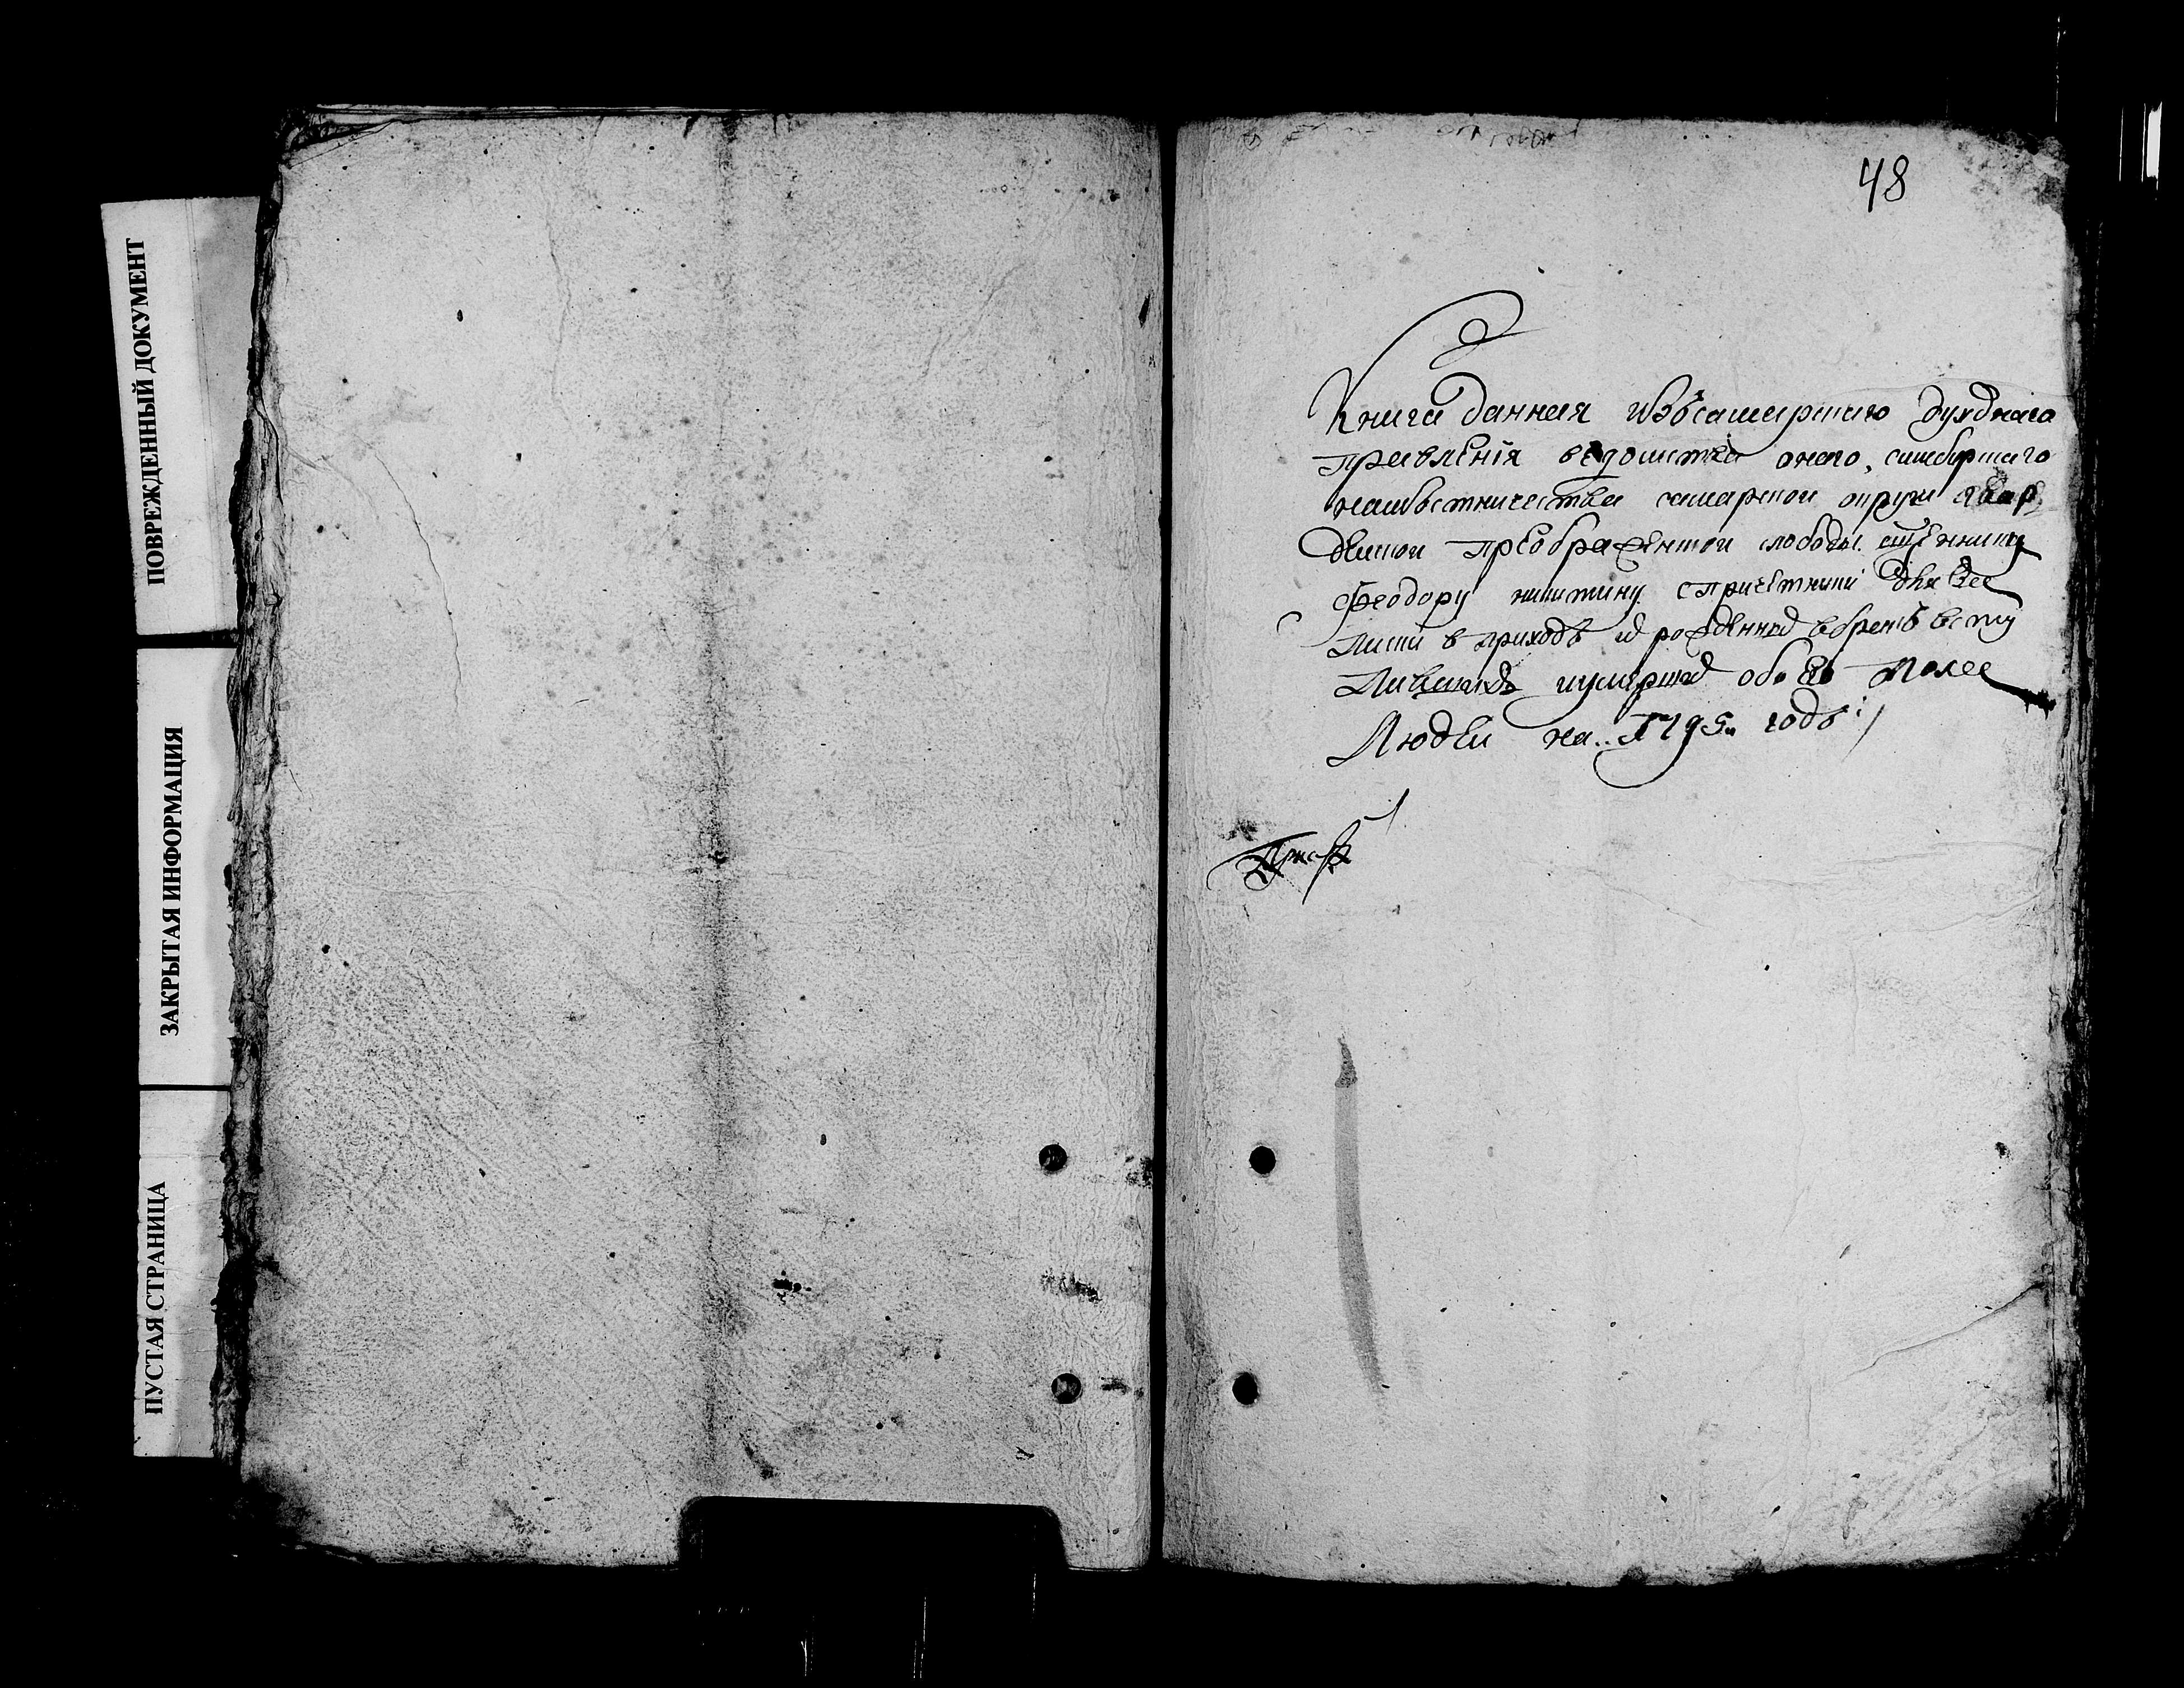 ПОВРЕЖДЕННЫЙ ДОКУМЕНТ
ЗАКРЫТАЯ ИНФОРМАЦИЯ
ПУСТАЯ СТРАНИЦА
48
Книга данная изъ самарскаго духовнаго
правленія ведомства онаго, симбирскаго
наместничества самарской округи
преображенской слободы священнику
феодору никитину с причетники для
писки в приходѣ ихъ рожденных бракъ всту
пившихъ и умерших обоего пола
Людеи на 1795 годъ